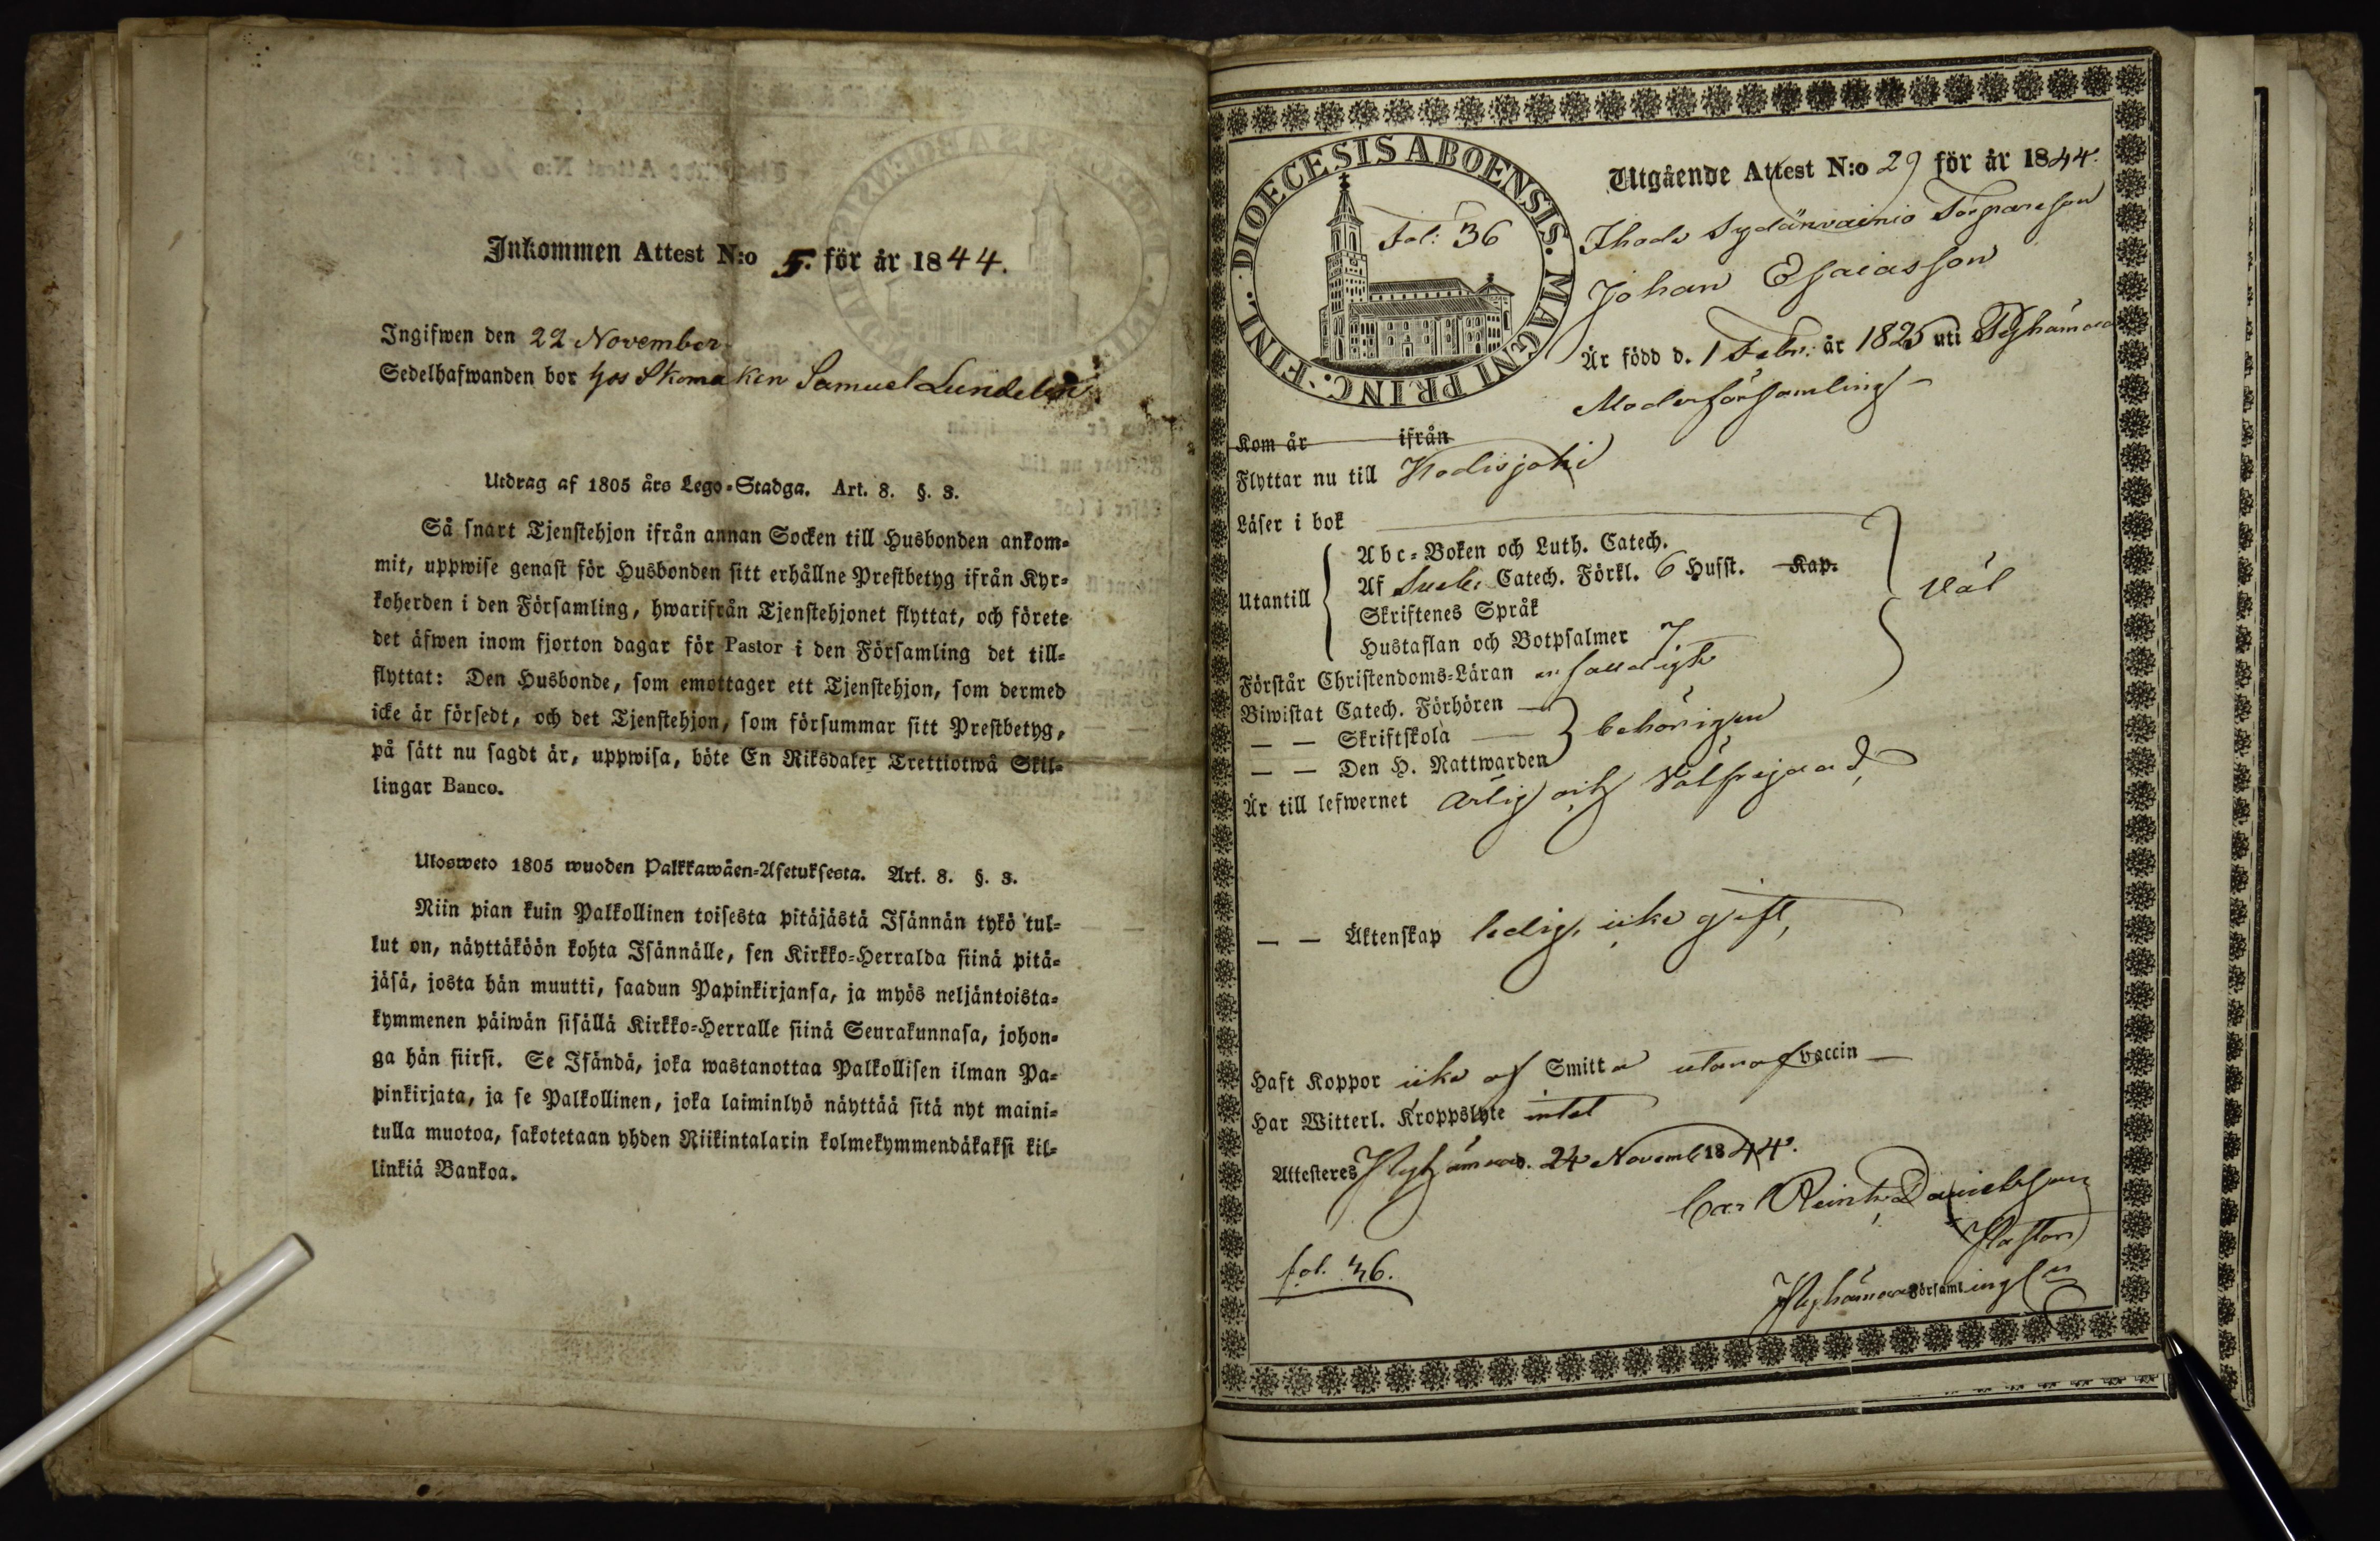 Inkommen Attest N:o 5. för år 1844.
Ingifwen den 22 November
Sedelhafwanden bor hos Skomaken Samuel Lundelin
Utdrag af 1805 års Lego-Stadga. Art. 8. §. 3.
Så snart Tjenstehjon ifrån annan Socken till Husbonden ankom-
mit, uppwise genast för Husbonden sitt erhållne Prestbetyg ifrån Kyr-
koherden i den Församling, hwarifrån Tjenstehjonet flyttat, och förete
det äfwen inom fjorton dagar för Pastor i den Församling det till-
flyttat: Den Husbonde, som emottager ett Tjenstehjon, som dermed
icke är försedt, och det Tjenstehjon, som försummar sitt Prestbetyg,
på sätt nu sagdt är, uppwisa, böte En Riksdaler Trettiotwå Skil-
lingar Banco.
Ulosweto 1805 wuoden Palkkawäen-Asetuksesta. Art. 8. §. 3.
Niin pian kuin Palkollinen toisesta pitäjästä Isännän tykö tul-
lut on, näyttäköön kohta Isännälle, sen Kirkko-Herralda siinä pitä-
jäsä, josta hän muutti, saadun Papinkirjansa, ja myös neljäntoista-
kymmenen päiwän sisällä Kirkko-Herralle siinä Seurakunnasa, johon-
ga hän siirsi. Se Isändä, joka wastanottaa Palkollisen ilman Pa-
pinkirjata, ja se Palkollinen, joka laiminlyö näyttää sitä nyt maini-
tulla muotoa, sakotetaan yhden Riikintalarin kolmekymmendäkaksi kil-
linkiä Bankoa.
DIOECESIS ABOENSIS. MAGNI PRINC. FINL.
fol: 36
Utgående Attest N:o 29 för år 1844.
Ihode Sydänvainio Torpareson
Johan Esaiasson
Är född d. 1 Febr: år 1825 uti Pyhämaa
Moderförsamling
Kom år ifrån
Flyttar nu till Hodisjoki
Läser i bok
Utantill
Abc-Boken och Luth. Catech.
Af Sveb: Catech. Förkl. 6 Hufst. Kap.
Skriftenes Språk
Hustaflan och Botpsalmer 7
väl
Förstår Christendoms-Läran enfaldigt
Biwistat Catech. Förhören
— — Skriftskola — behörigen
— — Den H. Nattwarden
Är till lefwernet ärlig och Välfrejdad,
— — Äktenskap ledig, icke gift,
Haft Koppor icke af Smitta utan af vaccin —
Har Witterl. Kroppslyte intet
Attesteres Pyhämaa d. 24 Novemb 1844.
Carl Reinh. Danielsson
Pastor
fol. 36.
Pyhämaa Församlingen